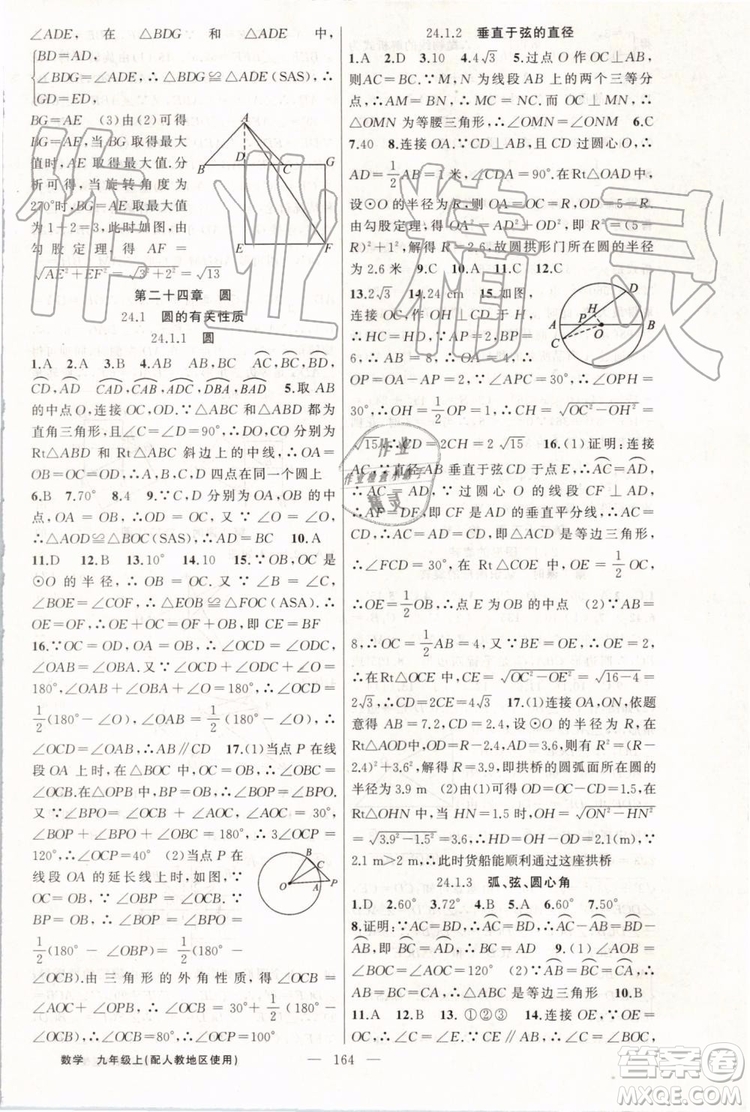 ∠ADE, 在 △BDG 和 △ADE 中,
BD=AD,
∠BDG=∠ADE, ∴△BDG≌△ADE(SAS),∴
GD=ED,
BG=AE (3)由(2)可得
BG=AE,当BG取得最大
值时,AE取得最大值.分
析可得,当旋转角度为
270°时,BG=AE,最大值
为1+2=3,此时如图,由
勾股定理,得 AF=
√(AE²+EF²)=√(3²+2²)=√13
A
D
B
C
G
E
F
第二十四章 圆
24.1 圆的有关性质
24.1.1 圆
1.A 2.A 3.B 4.AC AB,BC AC,BC,BD,
CD,AD CAD,CBD,ADC,DBA,BAD 5.取AB
的中点O,连接OC,OD.∵△ABC和△ABD都为
直角三角形,且∠C=∠D=90°,∴DO,CO分别为
Rt△ABD和Rt△ABC斜边上的中线,∴OA=
OB=OC=OD.∴A,B,C,D四点在同一个圆上
6.B 7.70° 8.4 9.∵C,D分别为OA,OB的中
点,OA=OB,∴OC=OD.又∵∠O=∠O,OB=
OA,∴△OAD≌△OBC(SAS),∴AD=BC 10.A
11.D 12.B 13.70° 14.10 15.∵OB,OC是
⊙O的半径,∴OB=OC.又∵∠B=∠C,
∠BOE=∠COF,∴△EOB≌△FOC(ASA).∴
OE=OF,∴OE+OC=OF+OB,即CE=BF
16.∵OC=OD,OA=OB,∴∠OCD=∠ODC,
∠OAB=∠OBA.又∵∠OCD+∠ODC+∠O=
180°,∠OAB+∠OBA+∠O=180°,∴∠OCD=
½(180°-∠O),∠OAB=½(180°-∠O),∴
∠OCD=∠OAB,∴AB∥CD 17.(1)当点P在线
段OA上时,在△BOC中,∵OC=OB,∴∠OBC=
∠OCB.又∵BP=BO,∴∠BOP=∠BPO.又∵
∠BPO=∠OCB+∠AOC,∠AOC=30°,
∠BOP+∠BPO+∠OBC=180°,∴3∠OCP=
120°,∴∠OCP=40° (2)当点P在
线段OA的延长线上时,如图,∵
OC=OB,∴∠OBP=∠OCB=
½(180°-∠BOC).∵OB=BP,∴∠OPB=
½(180°-∠OBP)=½(180°-
∠OCB).由三角形的外角性质,得∠OCB=
∠AOC+∠OPC=30°+½(180°-∠OCB)=
∠OCB,∴∠OCP=180°-∠OCB=100°
B
C
O
A
P
24.1.2 垂直于弦的直径
1.A 2.D 3.10 4.4√3 5.过点O作OC⊥AB,
则AC=BC.又∵M,N为线段AB上的两个三等分
点,∴AM=BN,∴CM=CN,∴OM=ON,∴
△OMN为等腰三角形,∴∠OMN=∠ONM 6.C
7.40 8.连接OA.∵CD⊥AB,且过圆心O,∴
AD=½AB=1米,∠CDA=90°.在Rt△OAD中,
设⊙O的半径为R,则OA=OC=R,OD=5-R.
由勾股定理,得OA²=OD²+AD²,即R²=(5-
R)²+1²,解得R=2.6.故圆拱形门所在圆的半径
为2.6米 9.C 10.A 11.C 12.C
13.2√3 14.24 cm 15.如图,
连接OC,作OH⊥CD于H,
∵HC=HD.∵AP=2,BP=6,
∴AB=8,∴OA=OC=4,∴
OP=OA-AP=2.∵∠OPH=
30°,∴OH=½OP=1,∴CH=√(OC²-OH²)=
√15,∴CD=2CH=2√15 16.(1)证明:连接
AC.∵直径AB垂直于弦CD于点E,∴
AC=AD.∵过圆心O的线段CF⊥AD,∴
AF=DF,即CF是AD的垂直平分线,∴
AC=CD,∴AC=AD=CD,即△ACD是等边三角形,
∴∠FCD=30°.在Rt△COE中,OE=½OC,
∴OE=½OB,∴点E为OB的中点 (2)∵AB=
8,∴OC=½AB=4,又∵BE=OE,∴
OE=2,∴CE=√(OC²-OE²)=√(16-4)=
2√3,∴CD=2CE=4√3 17.(1)连接OA,ON,依题
意得AB=7.2,CD=2.4,设⊙O的半径为R,则在
Rt△AOD中,OA²=AD²+OD²,即R²=(R-
2.4)²+3.6²,解得R=3.9,即拱桥的圆弧所在圆
的半径为3.9米 (2)∵OH=OD+DH,在
Rt△OHN中,当HN=1.5时,OH=√(ON²-HN²)
=√(3.9²-1.5²)=3.6,OD=R-CD=1.5,∴DH=
2.1 m>2 m,∴此时货船能顺利通过这座拱桥
H
D
A
P
O
B
C
24.1.3 弧、弦、圆心角
1.D 2.60° 3.72° 4.B 5.A 6.60° 7.50°
8.证明:∵AD=BC,∴AD=BC,∴AD+BD=BC+
BD,即AB=CD,∴AB=CD 9.(1)∠AOB=
∠BOC=∠AOC=120° (2)∵∠AOB=∠BOC=
∠AOC,∴AB=BC=CA,∴△ABC是等边三角形 10.B
11.A 12.D 13.①②③④ 14.40° 15.50°
数学 九年级上(配人教地区使用)
— 164 —
作业精灵
作业
作业检查小助手
精灵
答案圈
MXQE.COM